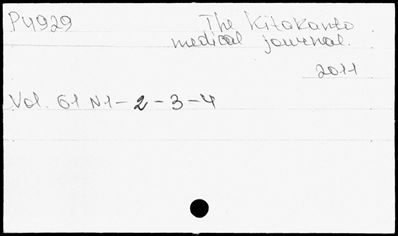 P4929
The Kitakanto
medical journal.
2011
Vol. 61 N1-2-3-4